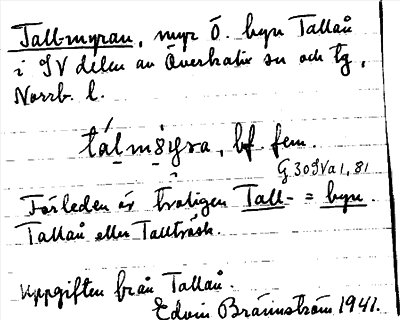 Tallmyran, myr Ö. byn Tallån
i SV delen av Överkalix sn och tg,
Norrb. l.
bf. fem.
G 30 SVa 1, 81
Förleden är troligen Tall- = byn
Tallån eller Tallträsk.
Uppgiften från Tallån.
Edvin Brännström 1941.